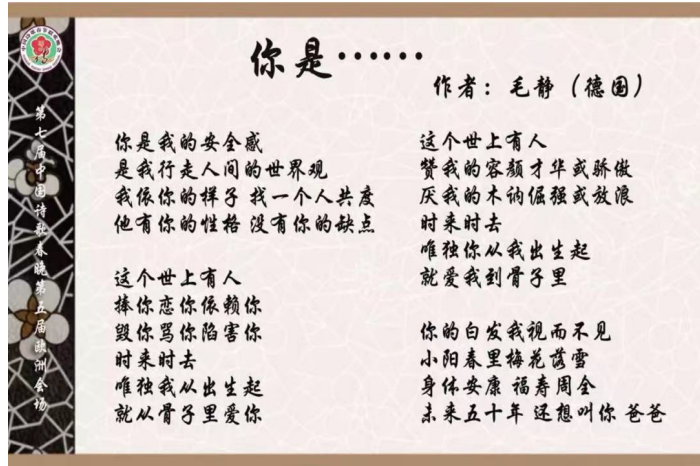 你是······
作者：毛静（德国）
你是我的安全感
是我行走人间的世界观
我依你的样子 找一个人共度
他有你的性格 没有你的缺点
这个世上有人
捧你恋你依赖你
毁你骂你陷害你
时来时去
唯独我从出生起
就从骨子里爱你
这个世上有人
赞我的容颜才华或骄傲
厌我的木讷倔强或放浪
时来时去
唯独你从我出生起
就爱我到骨子里
你的白发我视而不见
小阳春里梅花落雪
身体安康 福寿周全
未来五十年 还想叫你 爸爸
第七届中国诗歌春晚第五届欧洲会场